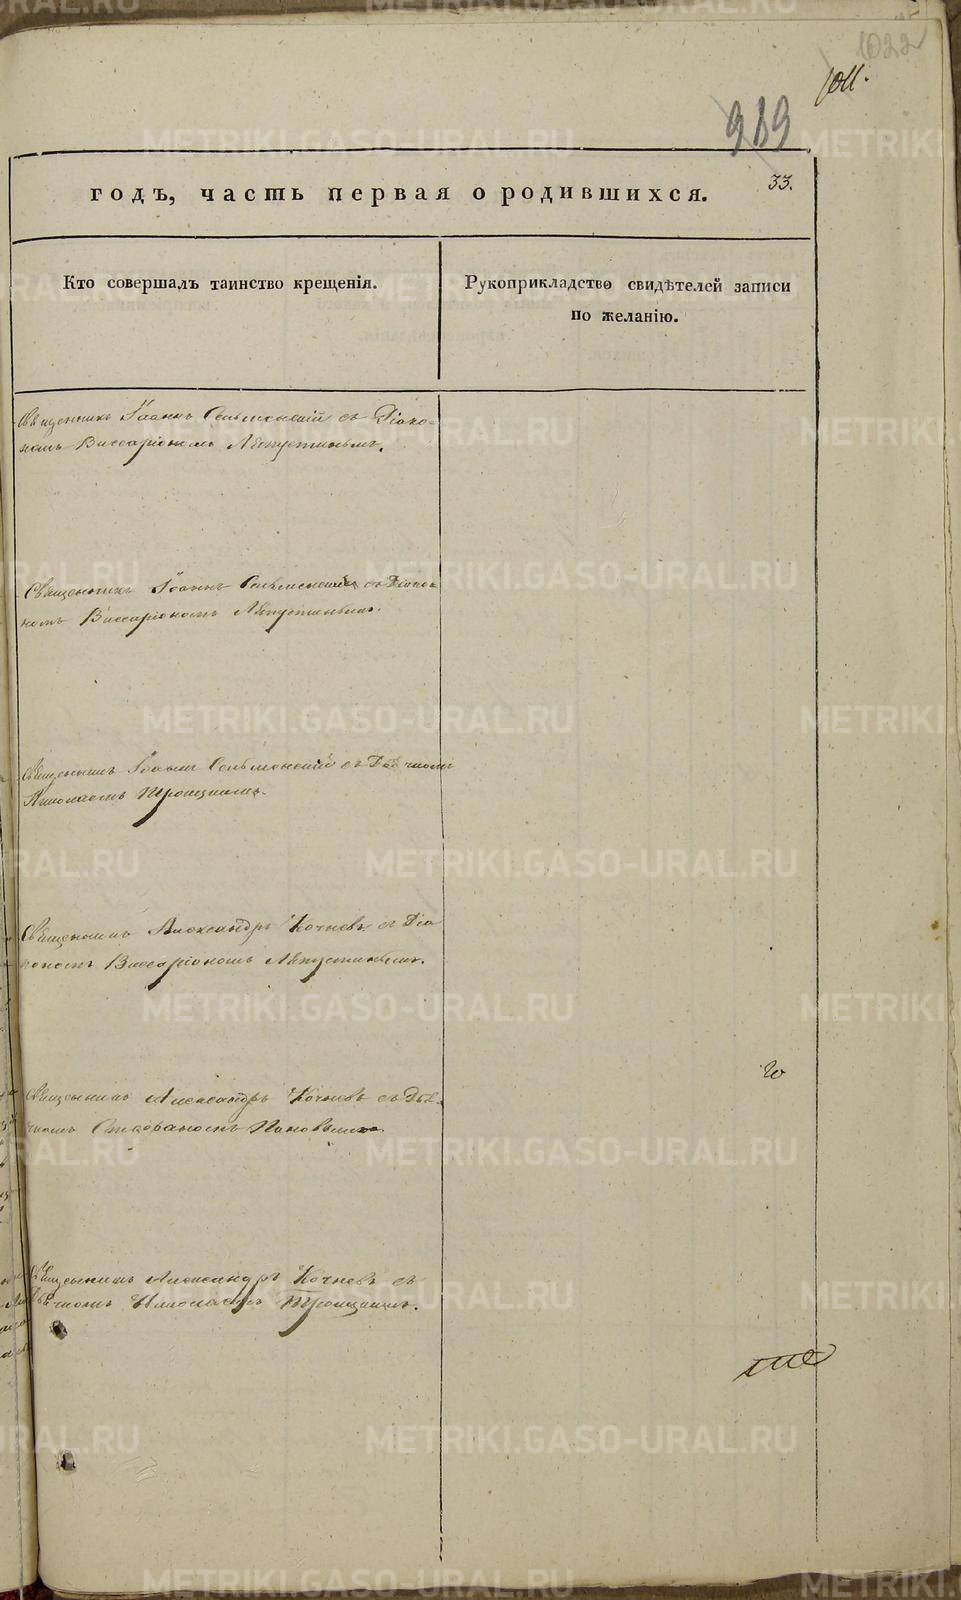 1022
1011.
989
33.
годъ, часть первая о родившихся.
Кто совершалъ таинство крещенія.
Рукоприкладство свидѣтелей записи
по желанію.
Священникъ Іоаннъ Сельменскій съ Діако-
номъ Виссаріономъ Лѣпустинымъ.
Священникъ Іоаннъ Сельменскій съ Діако-
номъ Виссаріономъ Лѣпустинымъ.
Священникъ Іоаннъ Сельменскій съ Дьячкомъ
Николаемъ Троицкимъ.
Священникъ Александръ Кочневъ съ Діа
кономъ Виссаріономъ Лѣпустинымъ.
Священникъ Александръ Кочневъ съ Дья-
чкомъ Стефаномъ Пановымъ.
Священникъ Александръ Кочневъ съ
Дьячкомъ Николаемъ Троицкимъ.
METRIKI.GASO-URAL.RU